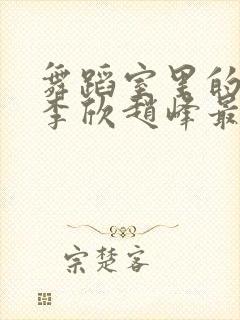 舞蹈室里的
李欣赵峰最
宗楚客